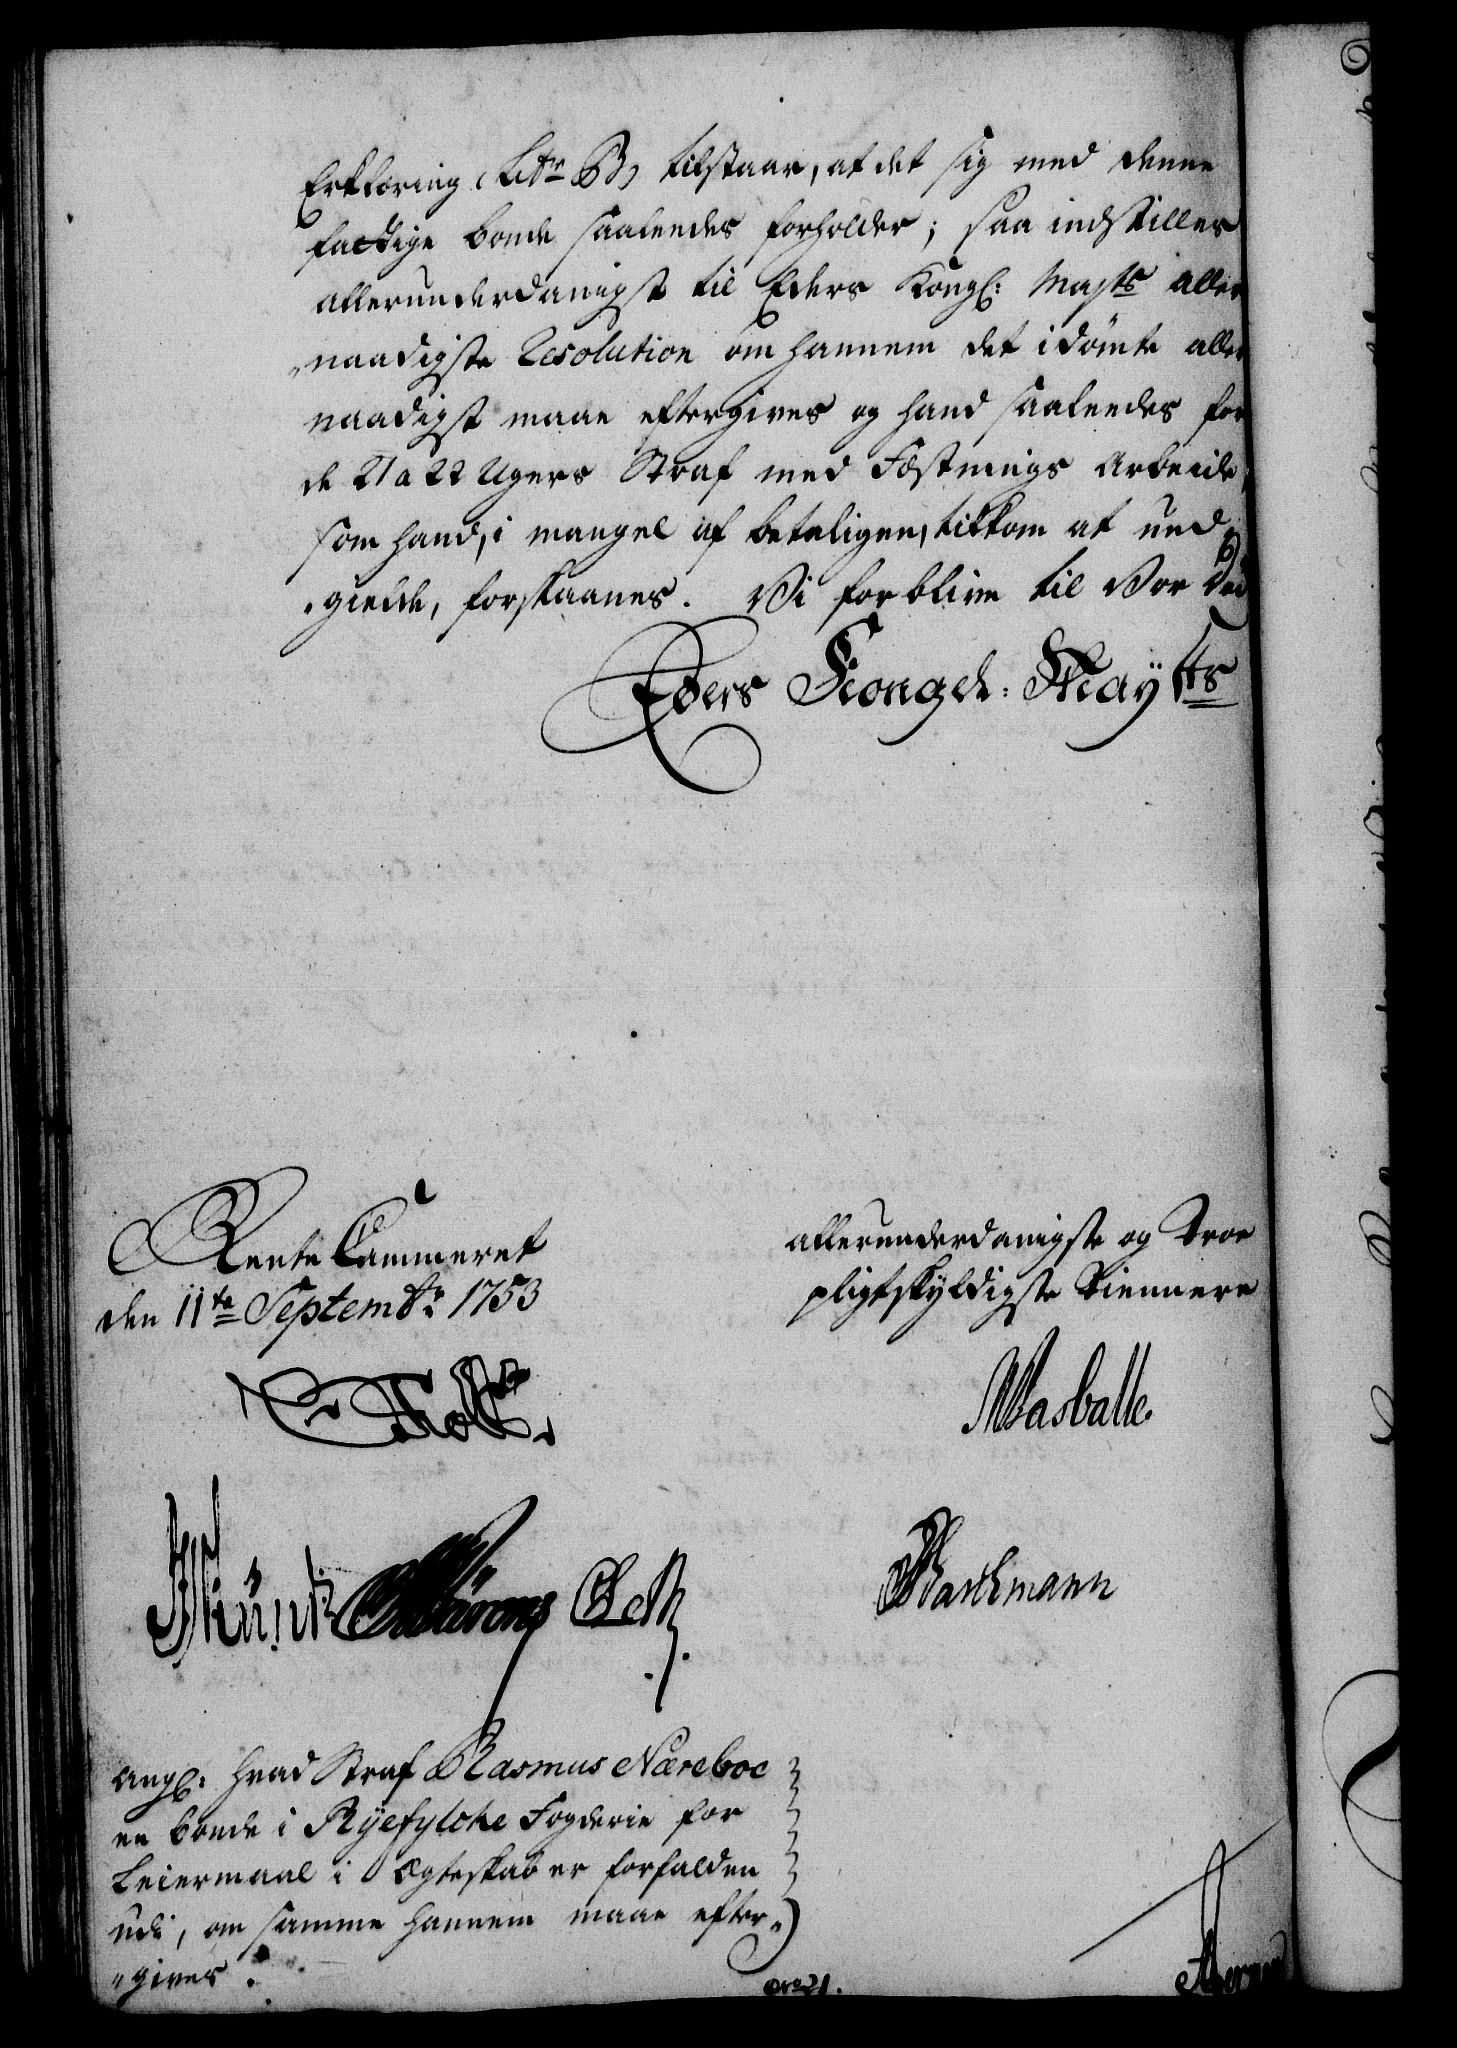 Erklæring, Litr B, tilstaar, at det sig med denne
fattige bonde saaleedes forholder; saa indstilles
allerunderdanigst til Eders Kongl: Maj.ts aller
„naadigste Resolution om hannem det idømte aller
naadigst maae eftergives og hand saaleedes for
de 21 a 22 Ugers Straf med Fæstnings Arbeide,
som hand, i mangel af betalingen, tilkom at und„
„gielde, forskaanes. Vi forblive til Vor Død
Eders Kongel: Mayts
Rente Cammeret
den 11te Septembr: 1753
allerunderdanigste og Troe
pligtskyldigste Tiennere
Holt.
Wasballe.
Barchmann
Angl: hvad Straf Rasmus Næreboe
en bonde i Ryefylche Fogderie for
Leiermaal i Ægteskab er forfalden
udi, om samme hannem maae efter„
„gives.
No 21.